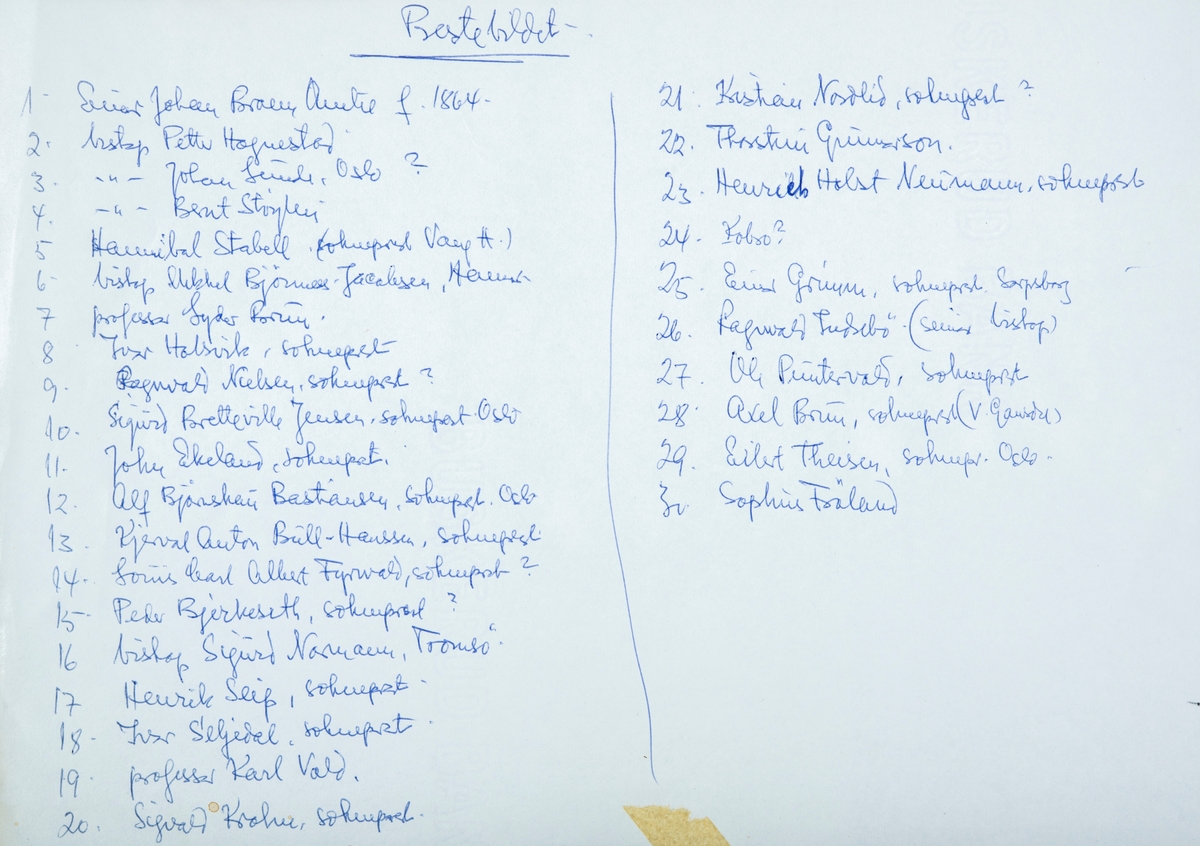 Bestebildet
1- Einar Johan Braem Amlie f. 1864.
2. biskop Petter Hognestad
3. -"- Johan Lunde, Oslo ?
4. -"- Bernt Støylen
5 Hannibal Stabell (sokneprest Vang H.)
6 biskop Mikkel Bjönnes-Jacobsen, Hamar
7 professor Lyder Brun.
8 Ivar Holsvik, sokneprest
9. Ragnvald Nielsen, sokneprest ?
10. Sigurd Bretteville Jensen, sokneprest Oslo
11. John Ekeland, soknepst.
12. Alf Bastiansen, soknepst. Oslo
13. Anton Bull-Hanssen, sokneprest
14. Louis Carl Albert Fyrwald, sokneprest ?
15- Peder Bjerkeseth, sokneprest ?
16 biskop Sigurd Normann, Tromsö
17 Henrik Seip, sokneprest
18. Ivar Seljedal, sokneprest
19. professor Karl Vold.
20. Sigvald Krohn, sokneprest.
21 Kristian Nordlid, sokneprest ?
22. Thorstein Gunnarson.
23. Henrich Holst Neumann, sokneprest
24. Kobro?
25. Einar Grimm, sokneprest. Sarpsborg
26. Ragnvald Indsebö (senior biskop)
27. Ole Puntervold, sokneprest
28. Axel Brun, sokneprest (V. Gausdal)
29. Eilert Theisen, soknepr. Oslo.
30. Sophus Fröland